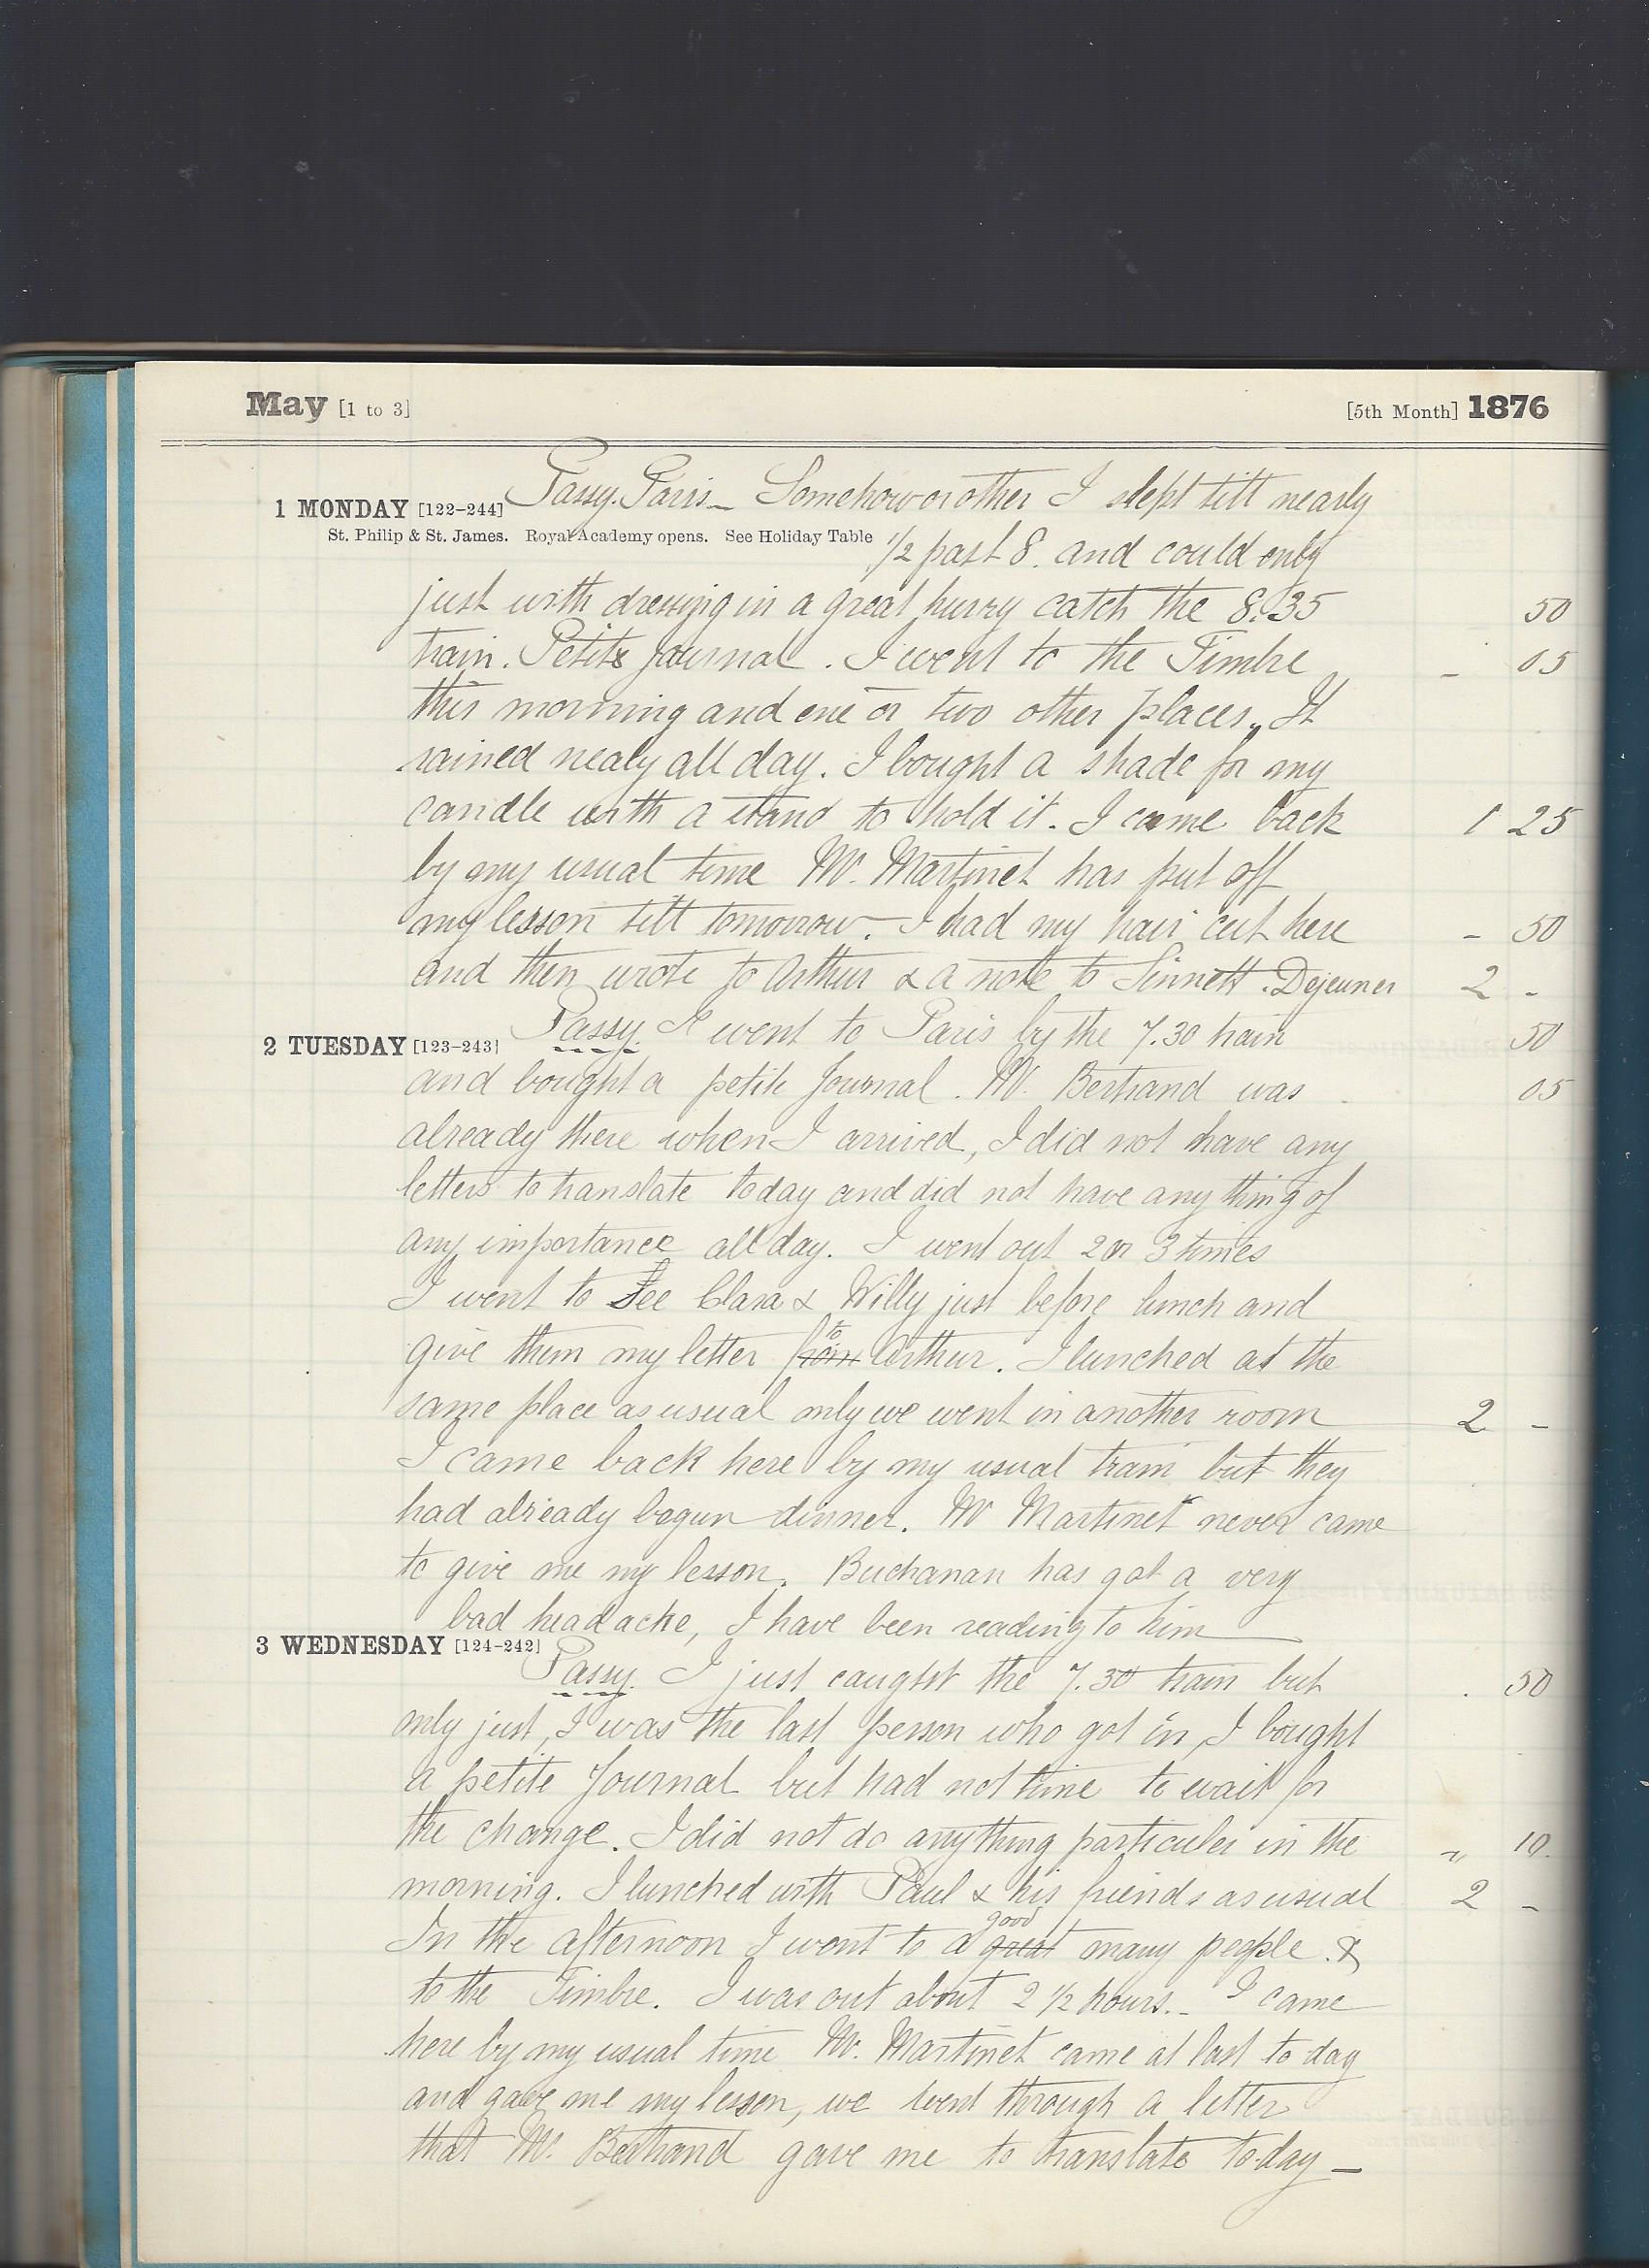 May [1 to 3] [5th Month] 1876
1 MONDAY [122-244] Passy. Paris_ Somehow or other I slept till nearly
St. Philip & St. James. Royal Academy opens. See Holiday Table 1/2 past 8. and could only
just with dressing in a great hurry catch the 8.35 50
train. Petite Journal. I went to the Timbre - 05
this morning and one or two other places. It
rained nealy all day. I bought a shade for my
candle with a stand to hold it. I came back 1 25
by my usual time Mr. Martinet has put off
my lesson till tomorrow. I had my hair cut here - 50
and then wrote to Arthur & a note to Sinnett. Dejeuner 2 -
2 TUESDAY [123-243] Passy. I went to Paris by the 7.30 train 50
and bought a petite Journal. Mr. Bertrand was 05
already there when I arrived, I did not have any
letters to translate today and did not have any thing of
any importance all day. I went out 2 or 3 times
I went to See Clara & Willy just before lunch and
give them my letter from to Arthur. I lunched at the
same place as usual only we went in another room 2 -
I came back here by my usual train but they
had already begun dinner. Mr Martinet never came
to give me my lesson. Buchanan has got a very
bad headache, I have been reading to him
3 WEDNESDAY [124-242] Passy. I just caught the 7.30 train but . 50
only just, I was the last person who got in, I bought
a petite Journal but had not time to wait for
the change. I did not do anything particular in the " 10.
morning. I lunched with Paul & his friends as usual 2 -
In the afternoon I went to a great good many people. &
to the Timbre. I was out about 2 1/2 hours._ I came
here by my usual time Mr. Martinet came at last to-day
and gave me my lesson, we went through a letter
that Mr. Bertrand gave me to translate to-day_